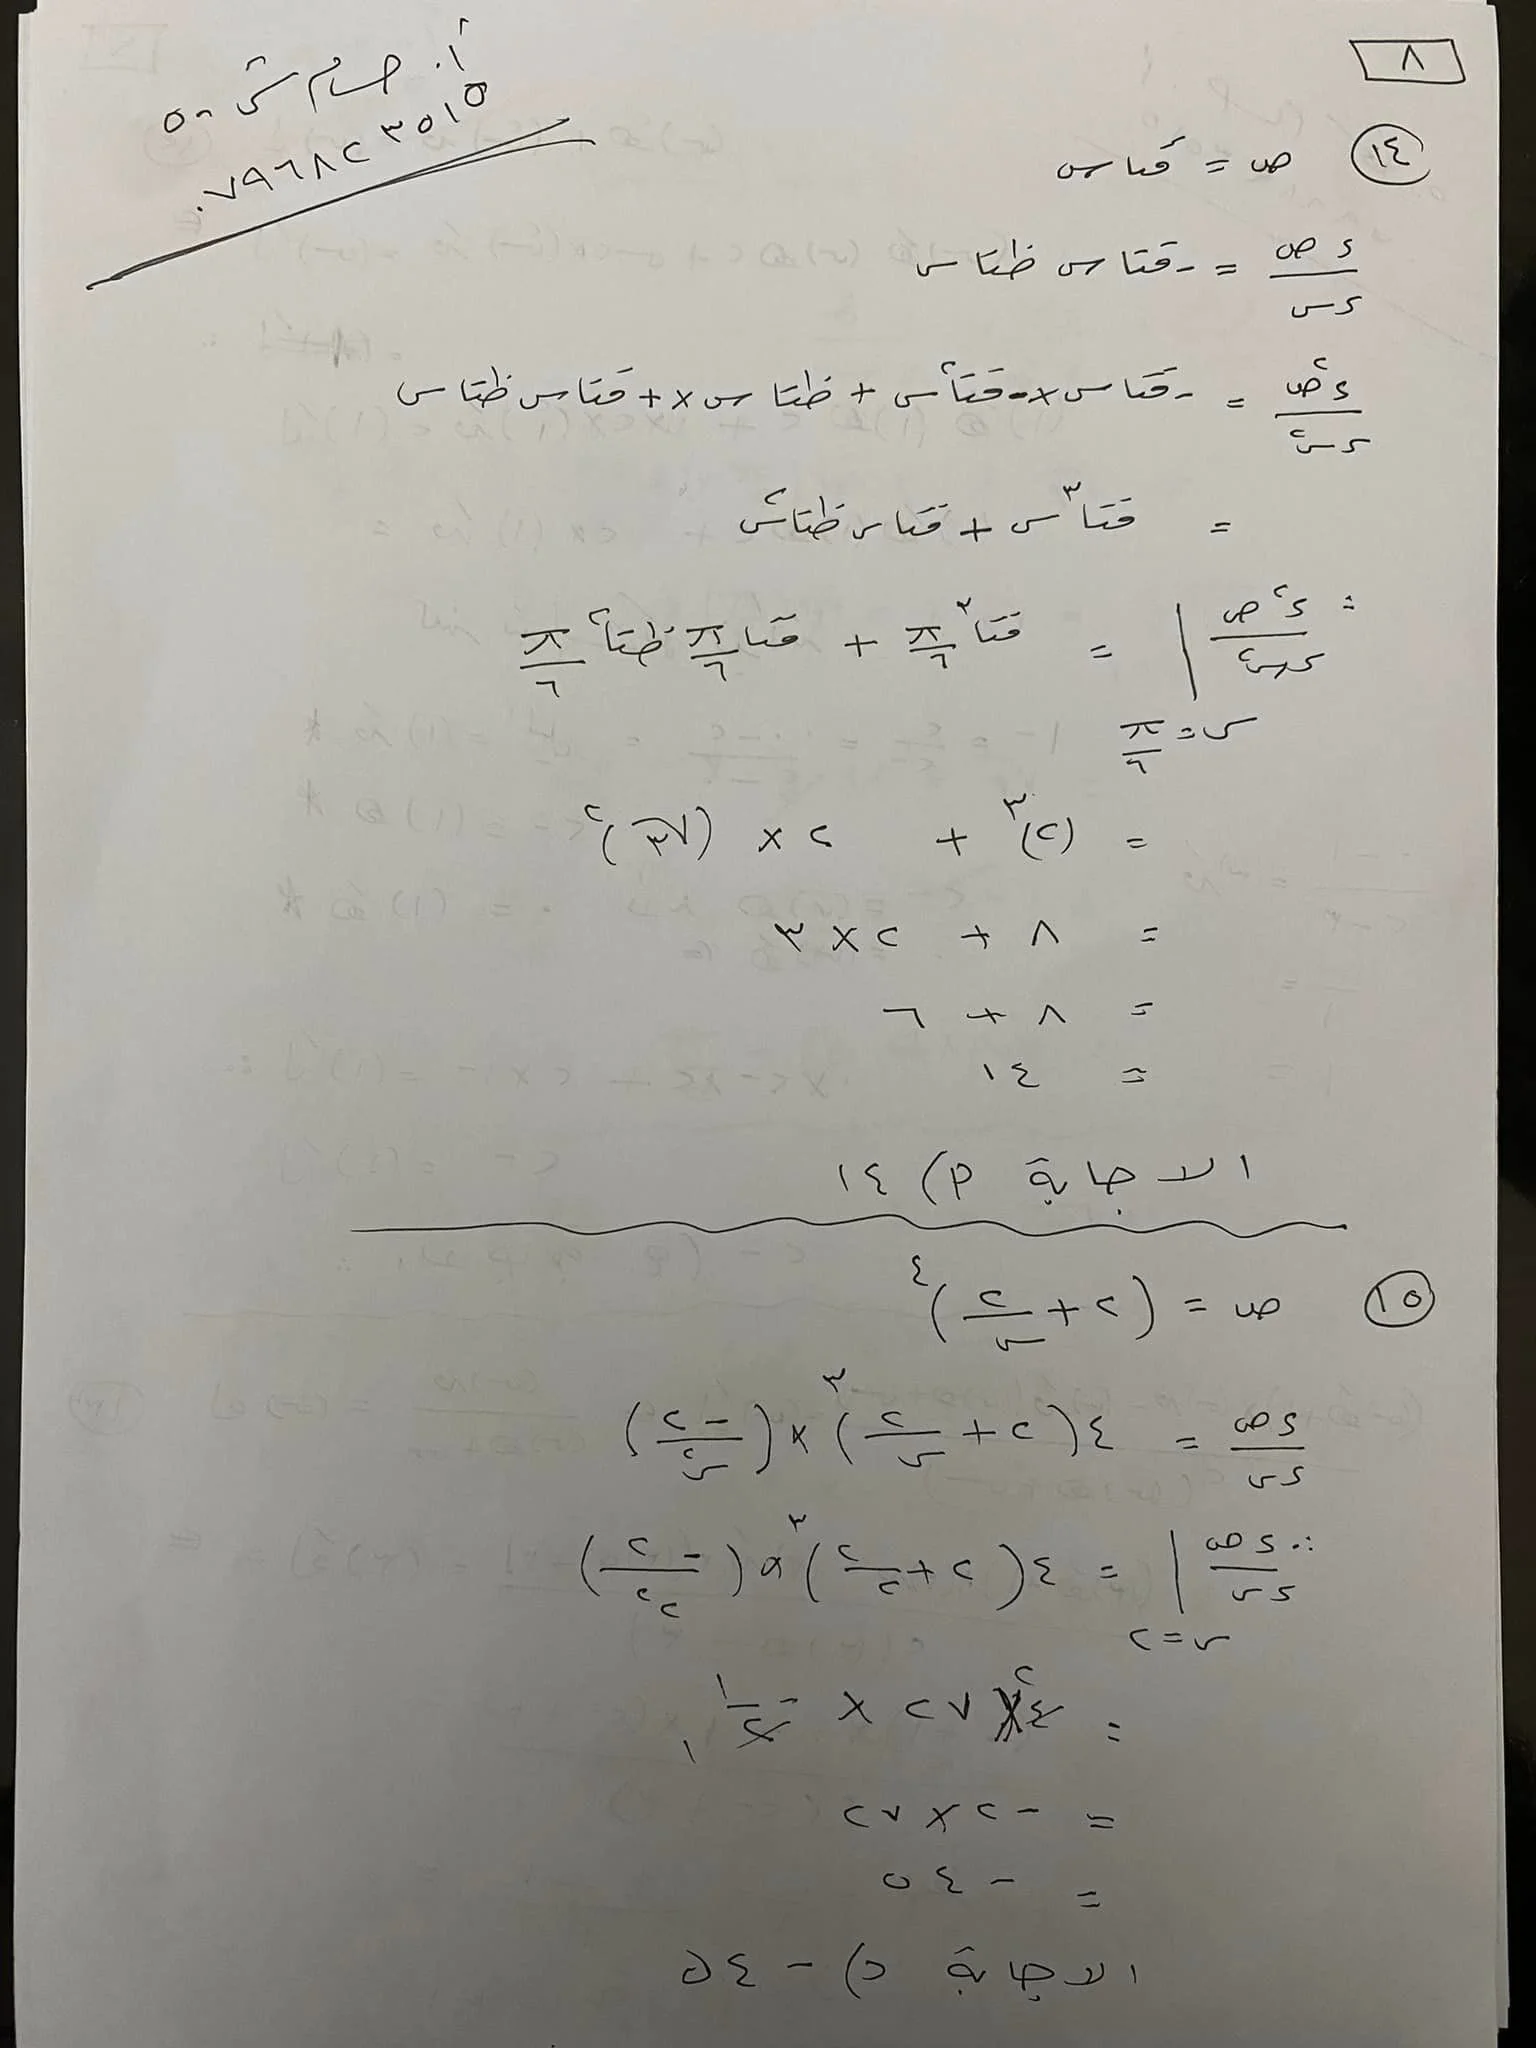 ٨
أ. حسام
٠٧٩٦٨٢٣٥١٥
١٤ ص = قتاس
دص/دس = -قتاس ظتاس
د²ص/دس² = -قتاس × -قتا²س + ظتاس × + قتاس ظتاس
= قتا³س + قتاس ظتا²س
∴ د²ص/دس² | س = π/٦ = قتا³ π/٦ + قتا π/٦ ظتا² π/٦
= (٢)³ + ٢ × (√٣)²
= ٨ + ٢ × ٣
= ٨ + ٦
= ١٤
الاجابة م) ١٤
١٥ ص = (٢ + ٢/س)⁴
دص/دس = ٤(٢ + ٢/س)³ × (-٢/س²)
∴ دص/دس | س = ٢ = ٤(٢ + ٢/٢)³ × (-٢/٢²)
= ٤ × ٢٧ × -١/٢
= -٢ × ٢٧
= -٥٤
الاجابة د) -٥٤